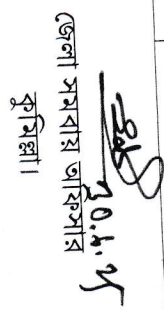 ৩০.৮.২৫
জেলা সমবায় অফিসার
কুমিল্লা।